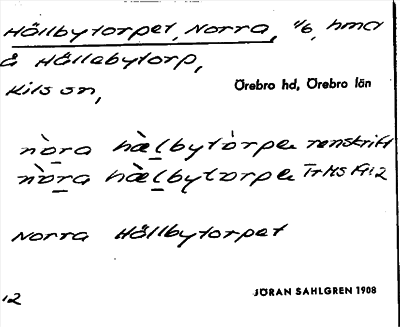 Hållbytorpet, Norra, 1/6, hmd
å Hållebytorp,
Kils sn,
Örebro hd, Örebro län
nòra hælbytòrpe renskrift
nòra hælbytorpe
Norra Hållbytorpet
JÖRAN SAHLGREN 1908
12